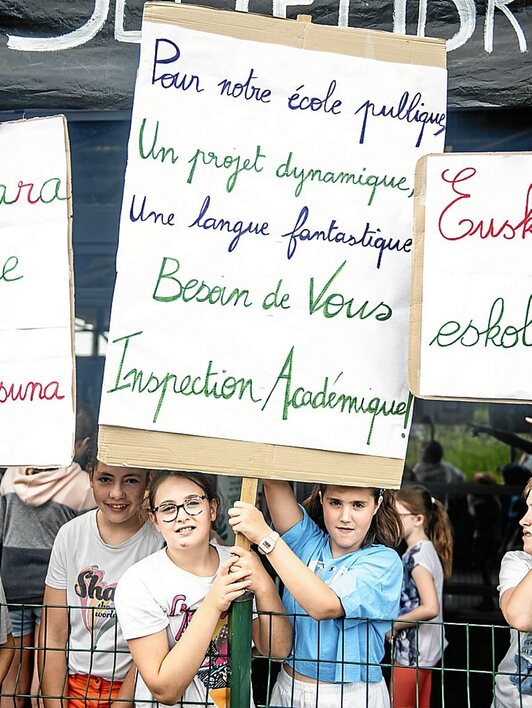 Pour notre école publique,
Un projet dynamique,
Une langue fantastique
Besoin de Vous
Inspection Académique!
ara
e
suna
Eusk
eskol
Sha
the world